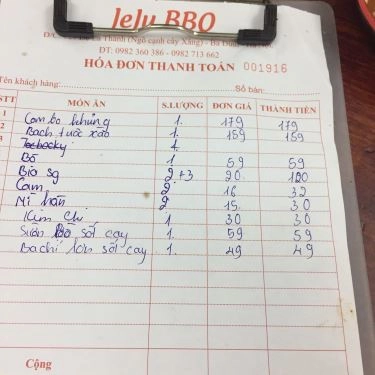 JeJu BBQ
(Ngõ cạnh cây Xăng) - Ba Đình
ĐT: 0982 360 386 - 0982 713 662
HÓA ĐƠN THANH TOÁN 001916
Tên khách hàng: Số bàn:
STT MÓN ĂN S.LƯỢNG ĐƠN GIÁ THÀNH TIỀN
1 Combo khủng 1. 179 179
2 Bạch tuộc xào 1. 159 159
3 1
Bò 1 59 59
Bia sg 2+3 20. 100
Cam 2 16 32
Mì hàn 2 15. 30
Kim chi 1 30 30
Sườn sốt cay 1. 59 59
Ba chỉ lợn sốt cay 1. 49 49
Cộng